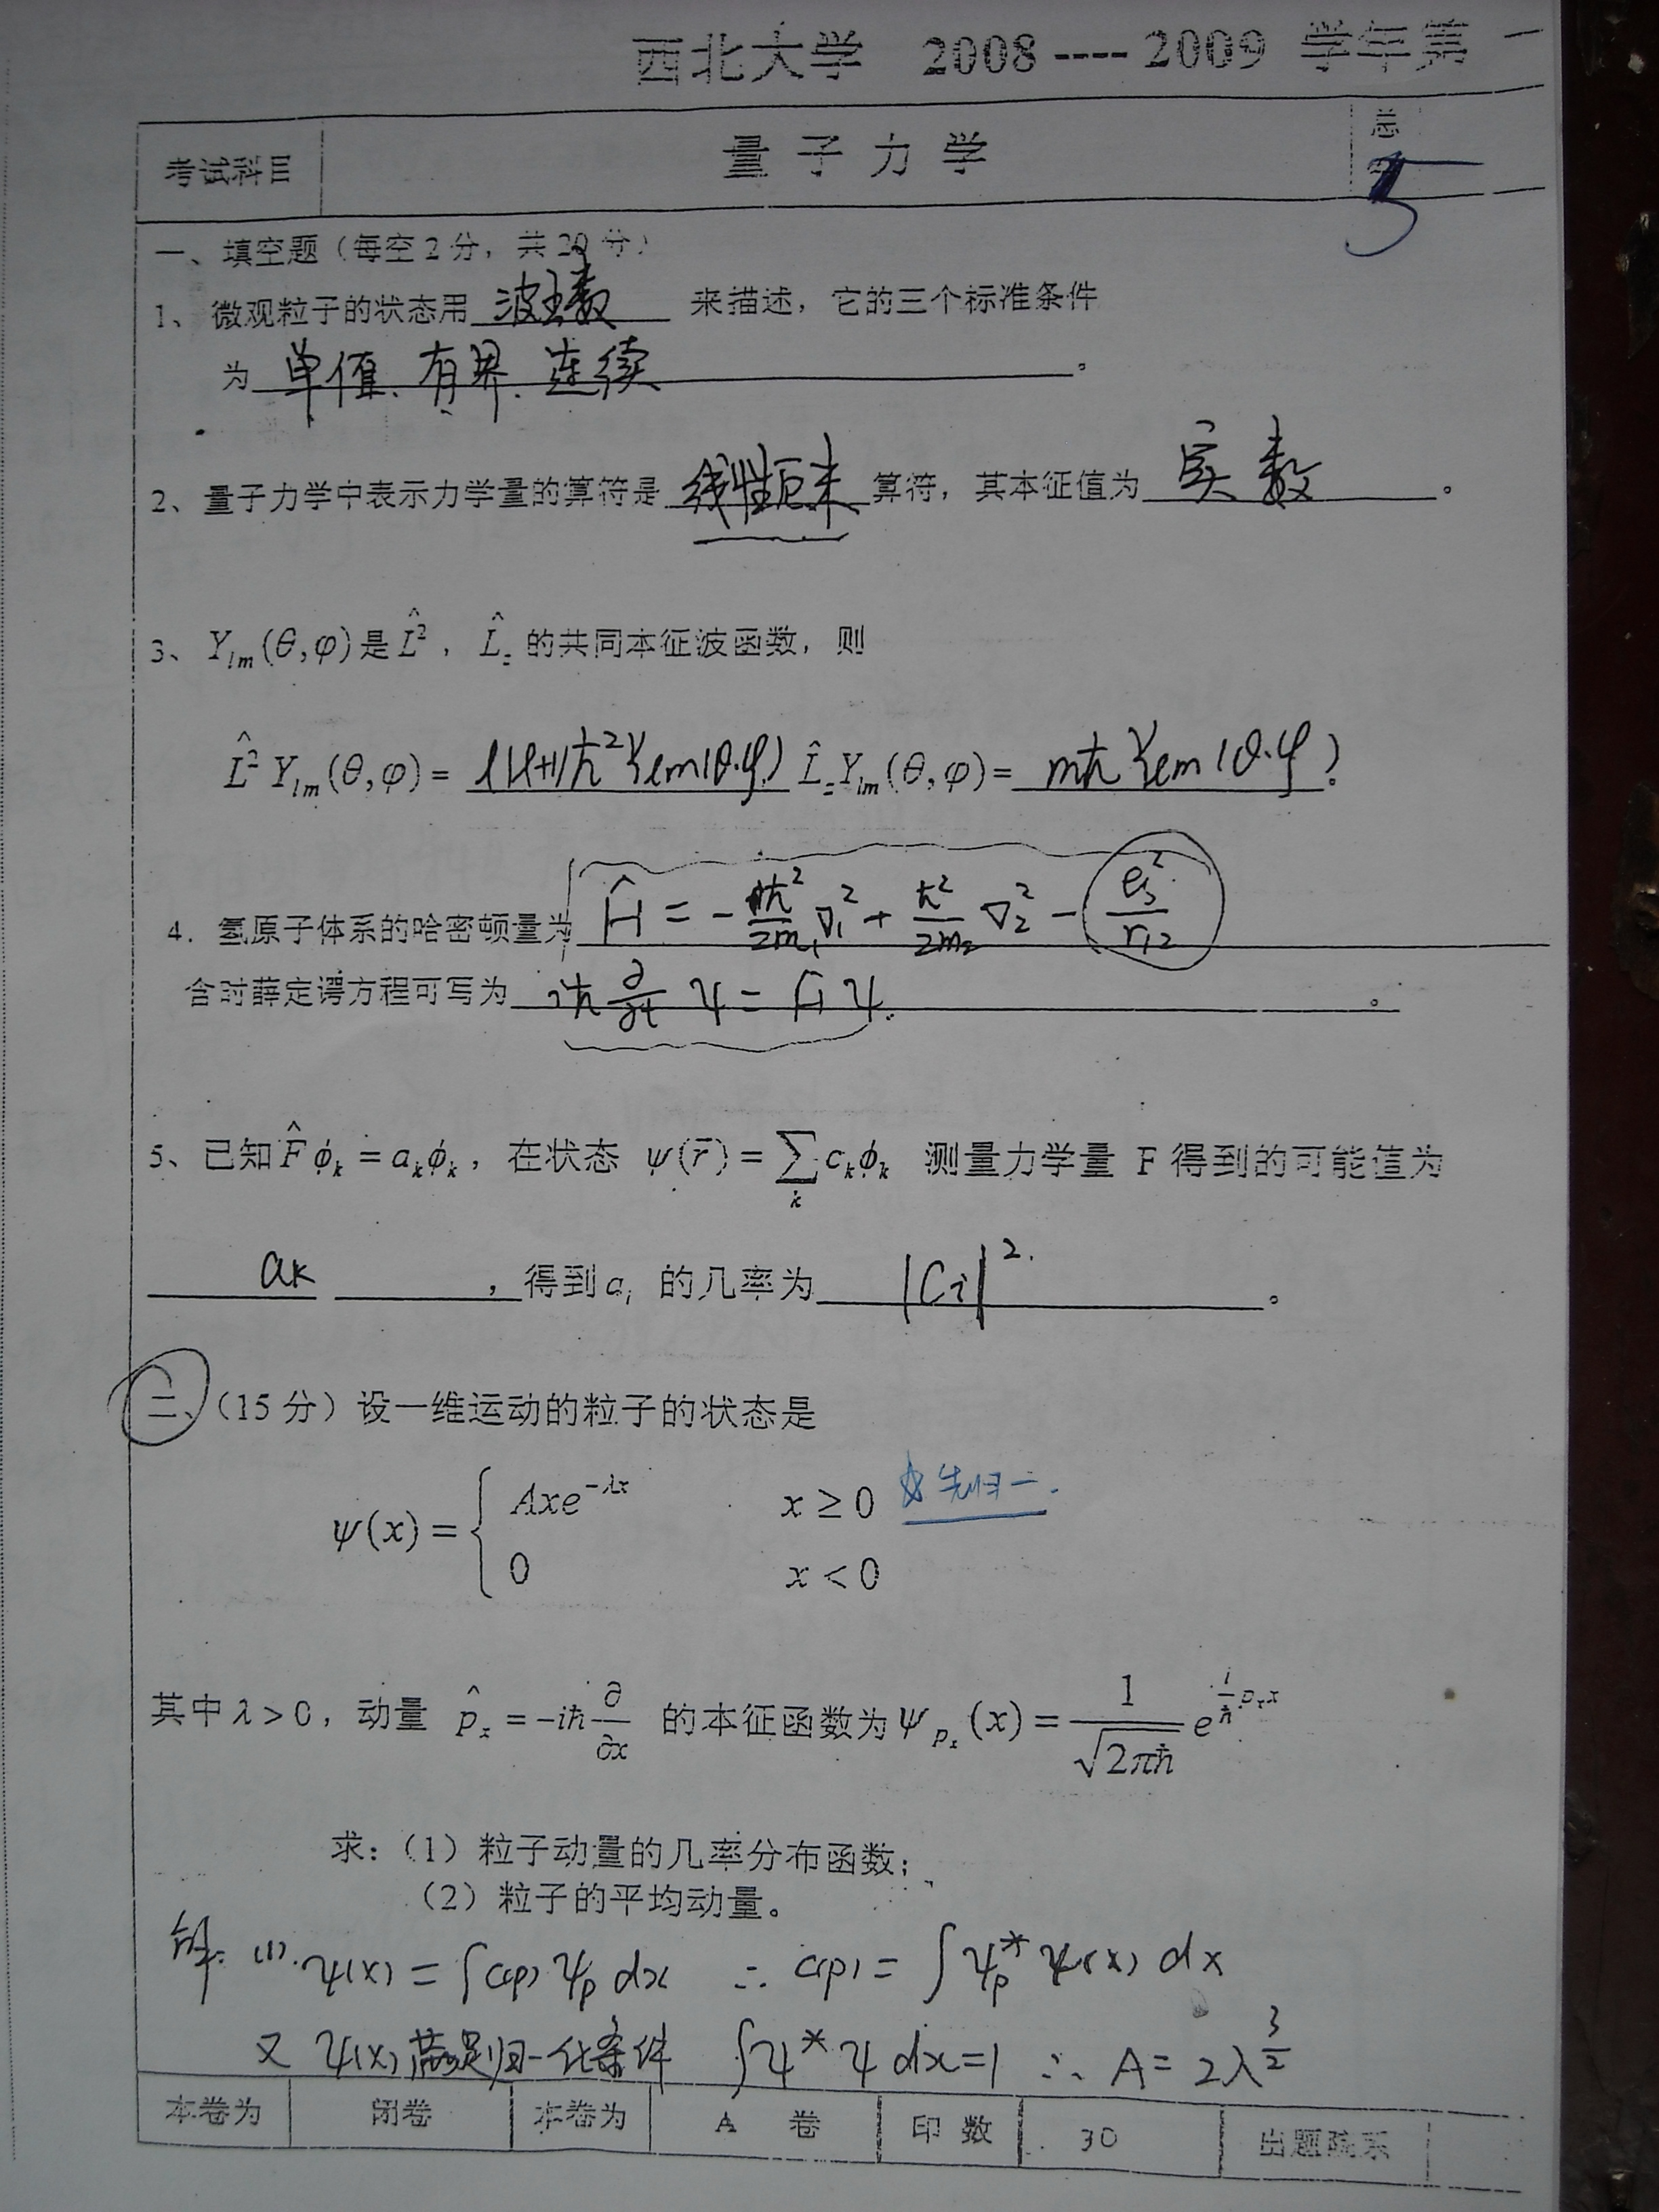 西北大学 2008 ---- 2009 学年第一
考试科目 量子力学 总
5
一、填空题（每空2分，共20分）
1、微观粒子的状态用 波函数 来描述，它的三个标准条件
为 单值、有界、连续 。
2、量子力学中表示力学量的算符是 线性厄米 算符，其本征值为 实数 。
3、Y_{lm}(θ,φ)是 \hat{L}^2，\hat{L}_z 的共同本征波函数，则
\hat{L}^2 Y_{lm}(θ,φ) = l(l+1)ħ^2 Y_{lm}(θ.φ) \hat{L}_z Y_{lm}(θ,φ) = mħ Y_{lm}(θ.φ)。
4. 氢原子体系的哈密顿量为 \hat{H} = -\frac{ħ^2}{2m_1}∇_1^2 + \frac{ħ^2}{2m_2}∇_2^2 - \frac{e_s^2}{r_{12}}
含时薛定谔方程可写为 iħ\frac{∂}{∂t}ψ = \hat{H}ψ. 。
5、已知 \hat{F}ϕ_k = a_kϕ_k，在状态 ψ(\vec{r}) = \sum_k c_kϕ_k 测量力学量 F 得到的可能值为
a_k ，得到 a_i 的几率为 |C_i|^2. 。
二、（15分）设一维运动的粒子的状态是
ψ(x) = { Axe^{-λx} x ≥ 0 ☆先归一.
0 x < 0
其中 λ > 0，动量 \hat{p}_x = -iħ\frac{∂}{∂x} 的本征函数为 ψ_{p_x}(x) = \frac{1}{\sqrt{2πħ}} e^{\frac{i}{ħ}p_x x}
求：（1）粒子动量的几率分布函数；
（2）粒子的平均动量。
解: (1). ψ(x) = ∫c(p) ψ_p dx ∴ c(p) = ∫ψ_p^* ψ(x) dx
又 ψ(x) 满足归一化条件 ∫ψ^* ψ dx = 1 ∴ A = 2λ^{\frac{3}{2}}
本卷为 闭卷 本卷为 A 卷 印数 30 出题院系